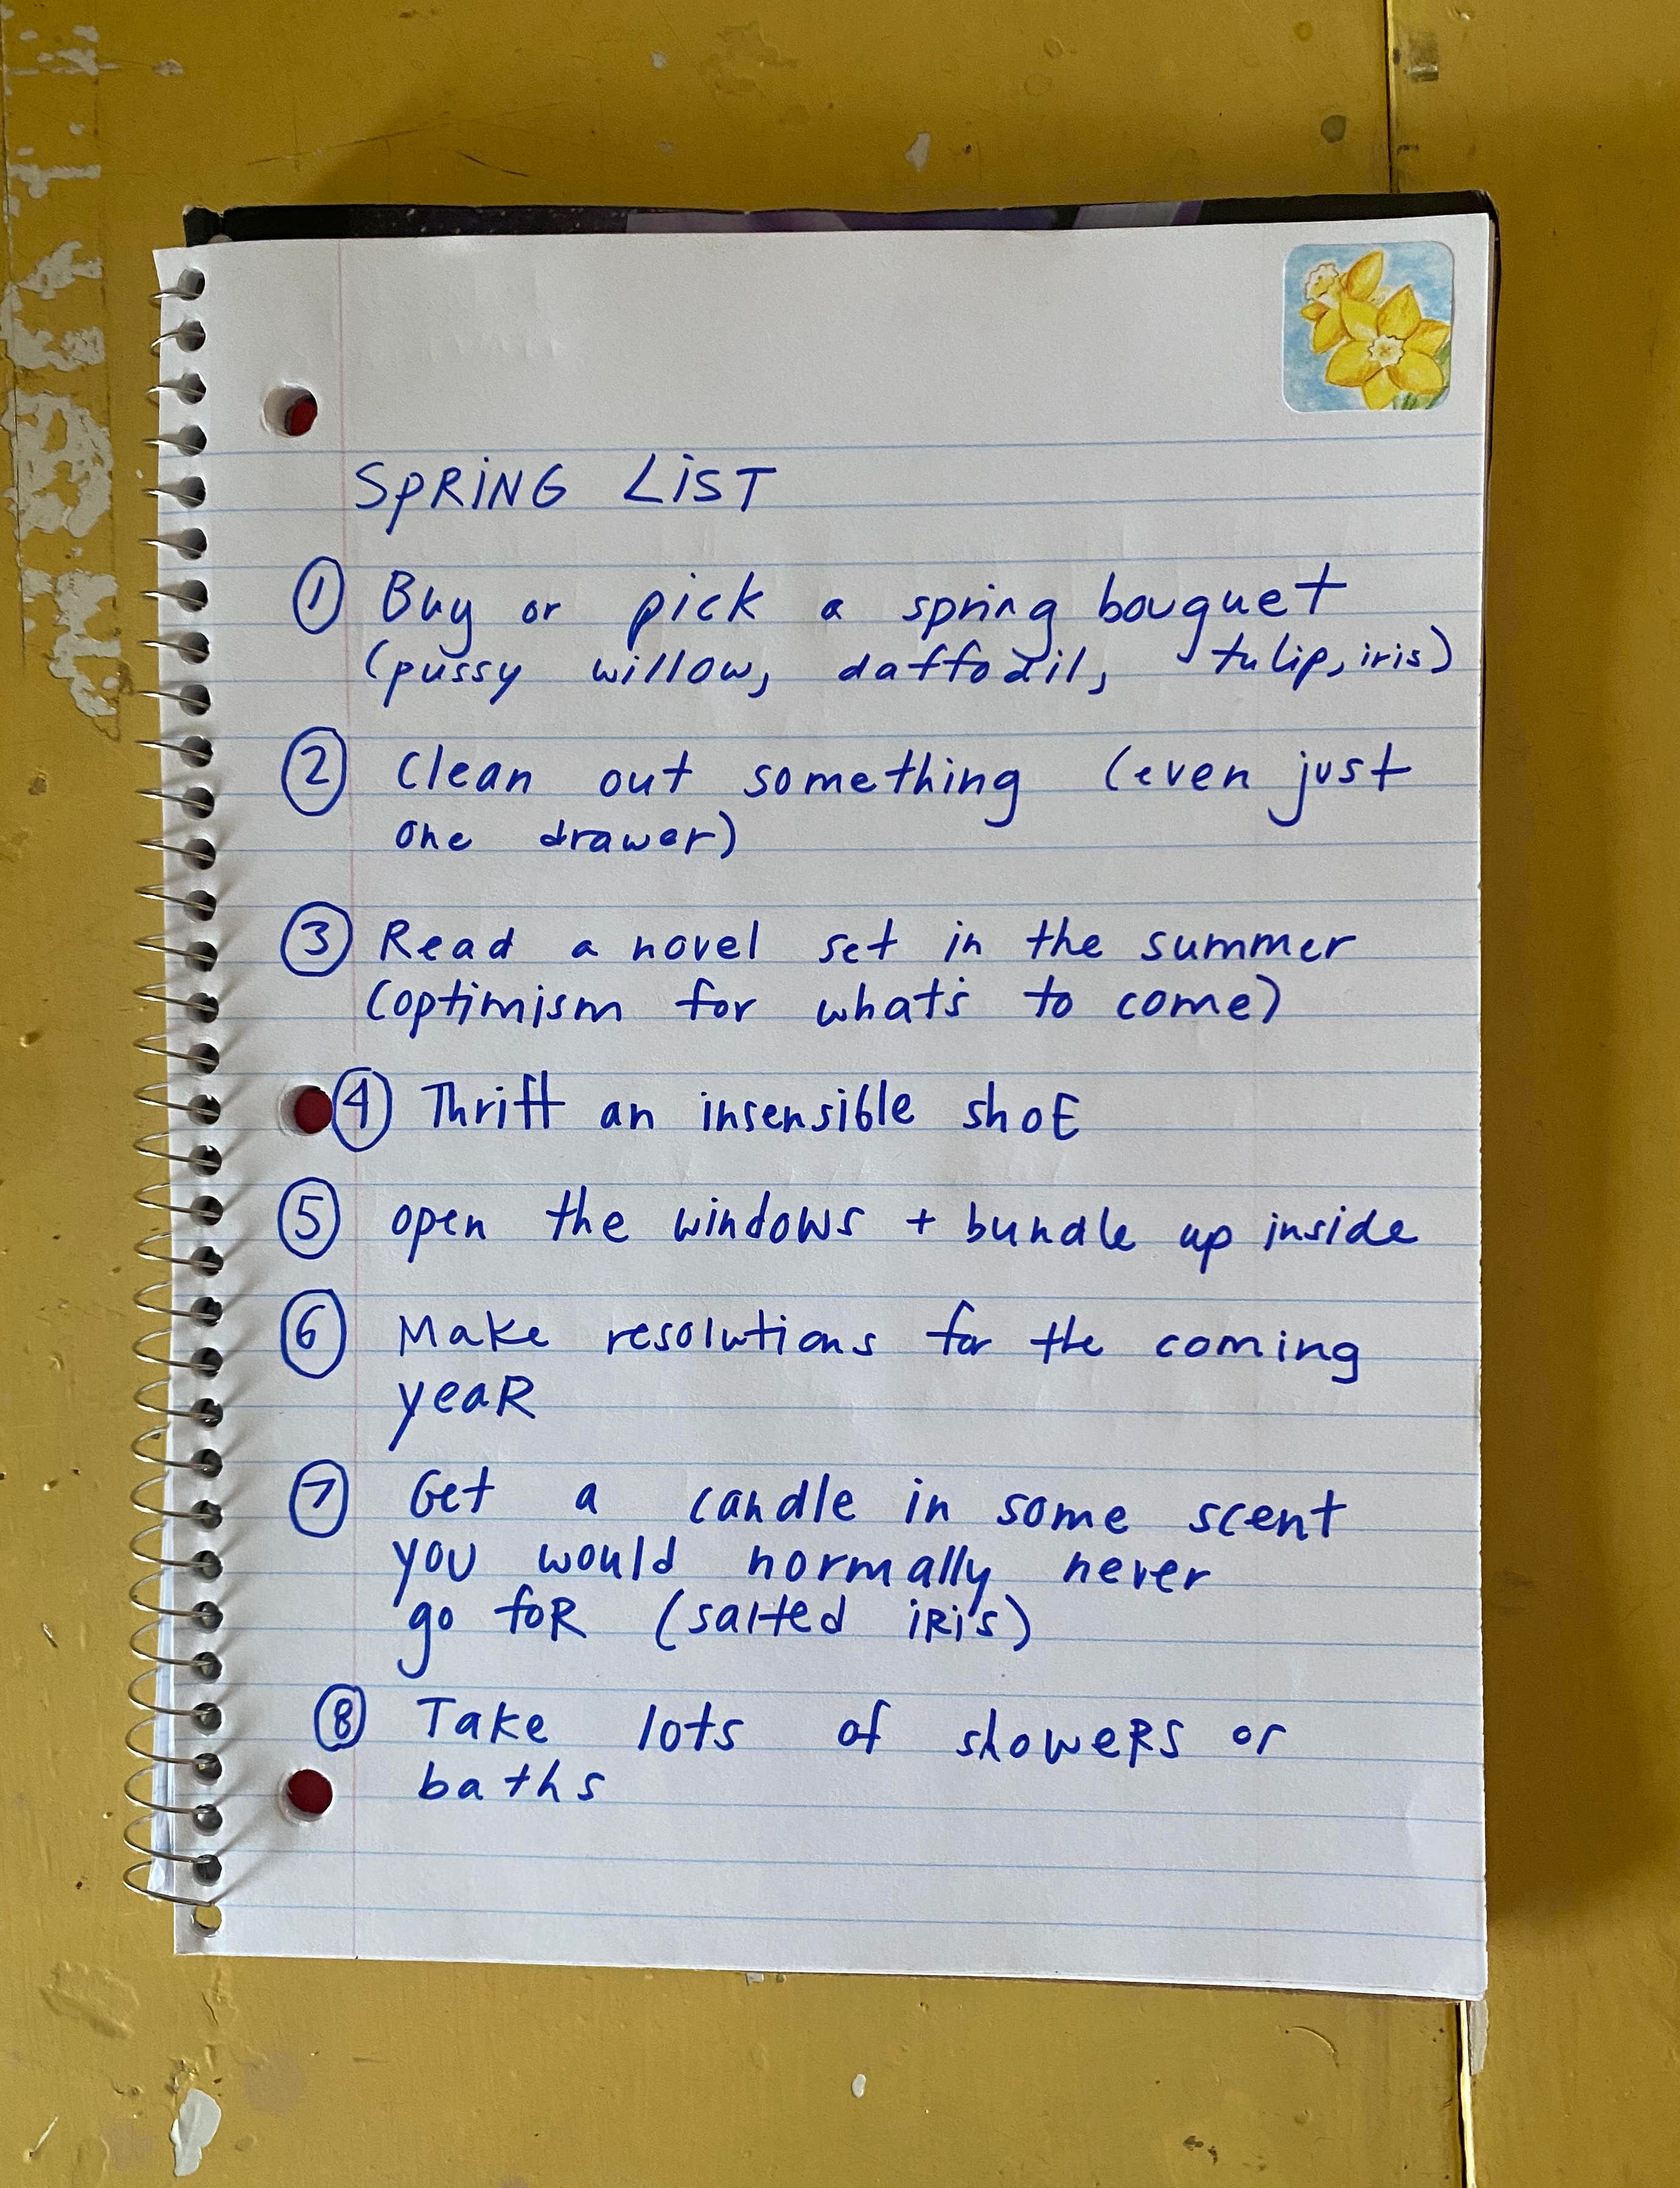 SPRiNG LiST
① Buy or pick a spring bouquet
(pussy willow, daffodil, tulip, iris)
② Clean out something (even just
one drawer)
③ Read a novel set in the summer
(optimism for what's to come)
④ Thrift an insensible shoE
⑤ open the windows + bundle up inside
⑥ Make resolutions for the coming
yeaR
⑦ Get a candle in some scent
you would normally never
go foR (salted iRis)
⑧ Take lots of showeRS or
baths